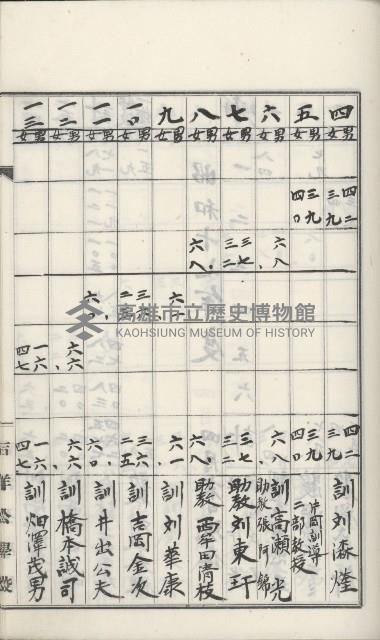 四 男女 四二 三九 四二 三九 訓 刘
五 男女 三九 四〇 三九 四〇 片岡訓導 二部教授
六 男女 六八 六八 訓 高瀬光 助教 張阿錦
七 男女 三七 三二 三七 三二 助教 刘東玕
八 男女 六八 六八 助教 西牟田清枝
九 男女 六一 六一 訓 刘華康
一〇 男女 三六 二五 訓 吉岡金次
一一 男女 六〇 六〇 訓 井出公夫
一二 男女 六六 六六 訓 橋本誠司
一三 男女 一六 四七 一六 四七 訓 畑澤茂男
高雄市立歷史博物館
KAOHSIUNG MUSEUM OF HISTORY